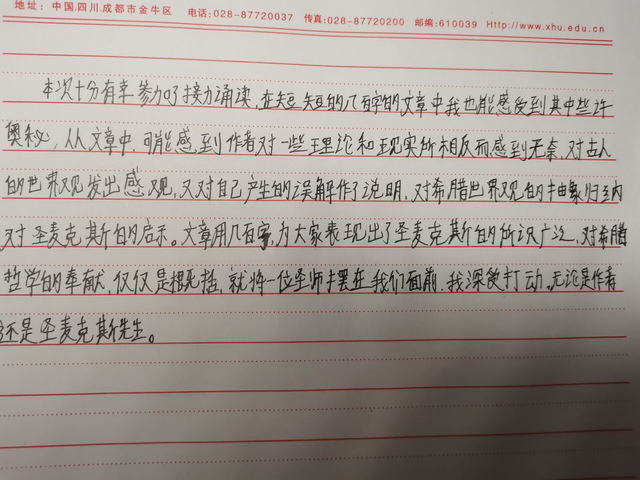 地址:中国.四川.成都市金牛区 电话:028-87720037 传真:028-87720200 邮编:610039 Http://www.xhu.edu.cn
本次十分有幸参加了接力诵读,在短短的几百字的文章中我也能感受到其中些许
奥秘,从文章中,可能感到作者对一些理论和现实所相反而感到无奈,对古人
的世界观发出感观,又对自己产生的误解作了说明,对希腊世界观的抽象归纳
对圣麦克斯的启示。文章用几百字,为大家表现出了圣麦克斯的所识广泛,对希腊
哲学的奉献,仅仅是概括,就将一位圣师摆在我们面前,我深受打动。无论是作者
还是圣麦克斯先生。